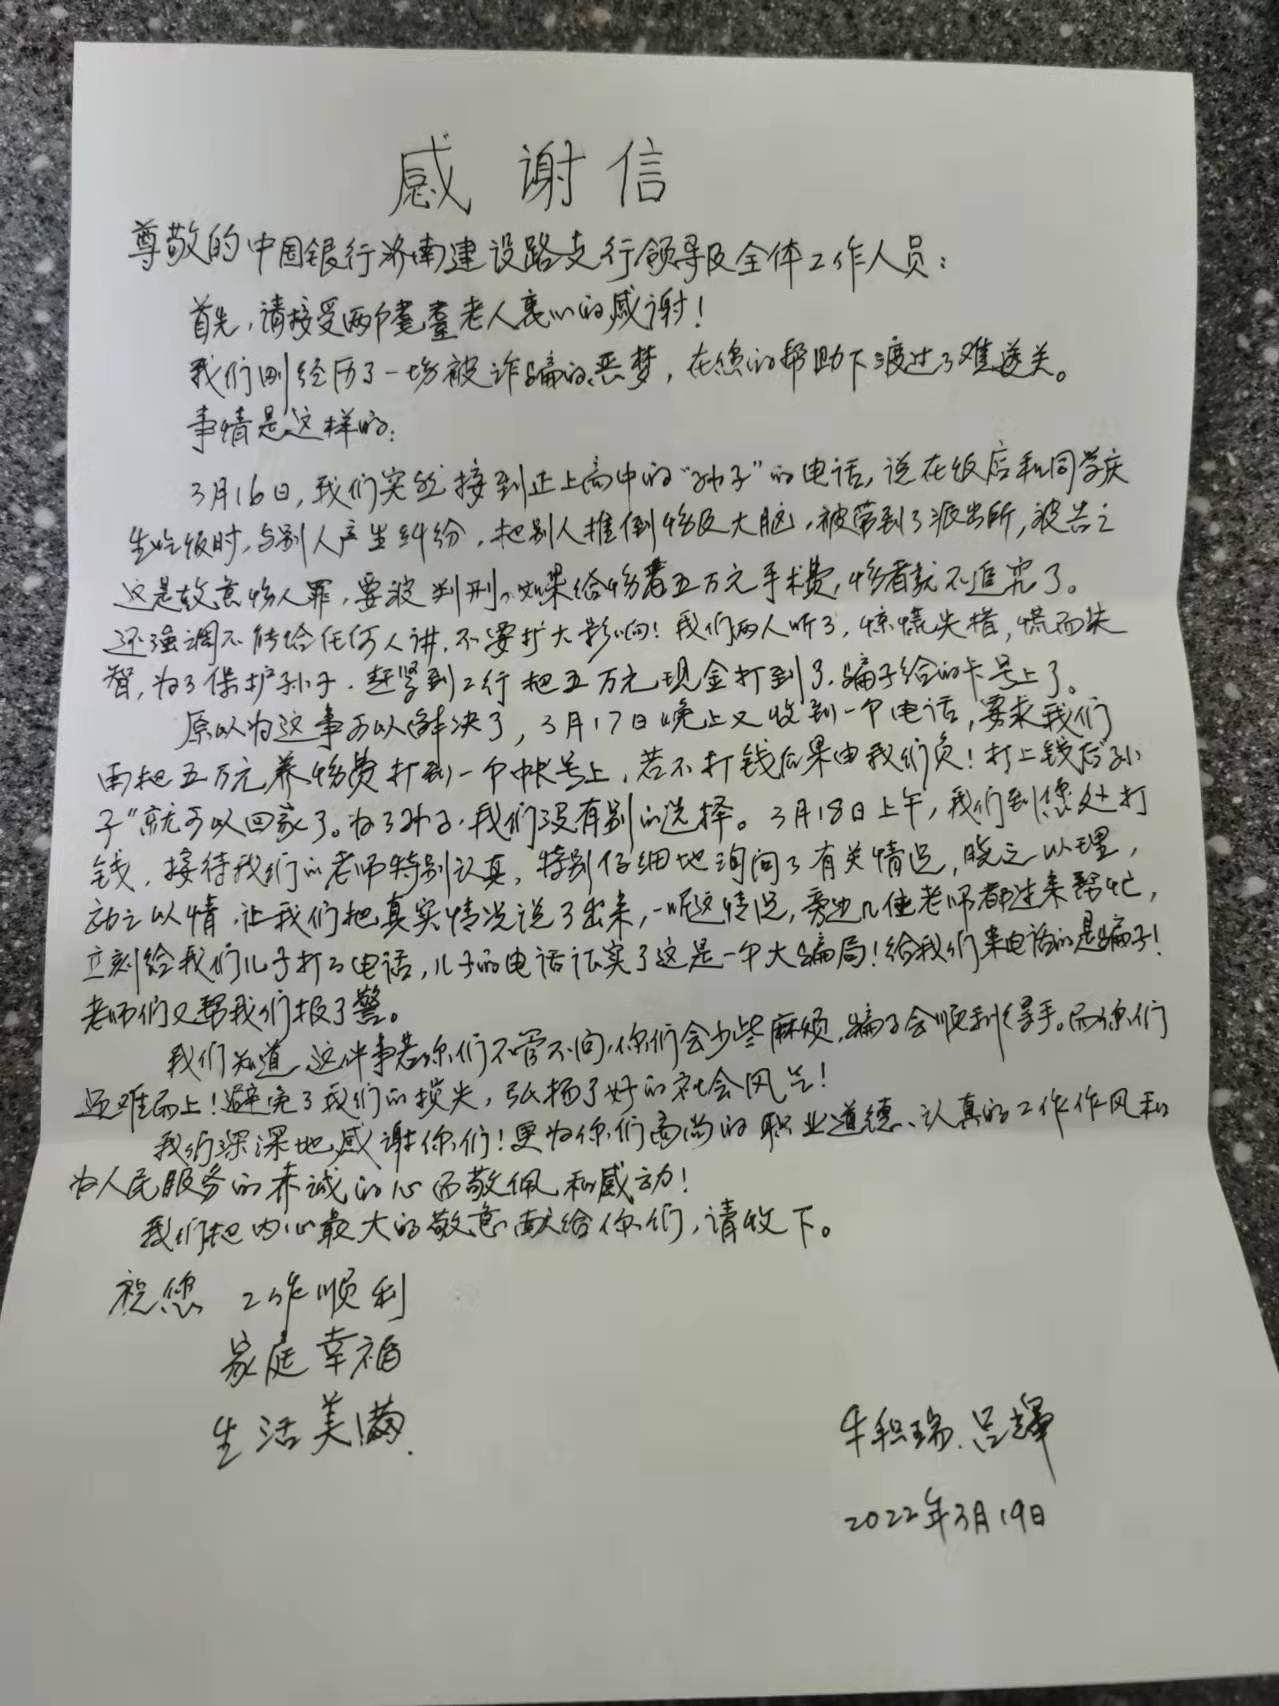 感谢信
尊敬的中国银行济南建设路支行领导及全体工作人员：
首先，请接受两个耄耋老人衷心的感谢！
我们刚经历了一场被诈骗的恶梦，在您的帮助下渡过了难关。
事情是这样的：
3月16日，我们突然接到正上高中的“孙子”的电话，说在饭店和同学庆
生吃饭时，与别人产生纠纷，把别人推倒伤及大脑，被带到了派出所，被告之
这是故意伤人罪，要被判刑。如果给伤者五万元手术费，伤者就不追究了。
还强调不能给任何人讲，不要扩大影响！我们两人听了，惊慌失措，慌而失
智，为了保护孙子，赶紧到工行把五万元现金打到了骗子给的卡号上了。
原以为这事可以解决了，3月17日晚上又收到一个电话，要求我们
再把五万元养伤费打到一个帐号上，若不打钱后果由我们负！打上钱后“孙
子”就可以回家了。为了孙子，我们没有别的选择。3月18日上午，我们到您处打
钱，接待我们的老师特别认真，特别仔细地询问了有关情况，晓之以理，
动之以情，让我们把真实情况说了出来，一听这情况，旁边几位老师都过来帮忙，
立刻给我们儿子打了电话，儿子的电话证实了这是一个大骗局！给我们来电话的是骗子！
老师们又帮我们报了警。
我们知道，这件事若你们不管不问，你们会少些麻烦，骗子会顺利得手。而你们
迎难而上！避免了我们的损失，弘扬了好的社会风气！
我们深深地感谢你们！更为你们高尚的职业道德、认真的工作作风和
为人民服务的赤诚的心而敬佩和感动！
我们把内心最大的敬意献给你们，请收下。
祝您 工作顺利
家庭幸福
生活美满
牛积瑞、吕辉
2022年3月19日